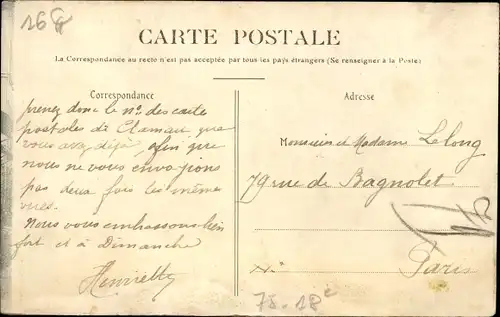 16
CARTE POSTALE
La Correspondance au recto n'est pas acceptée par tous les pays étrangers (Se renseigner à la Poste)
Correspondance
prenez donc le no. des carte
postales de Clamart que
vous avez déjà, afin que
nous ne vous envoyions
pas deux fois les mêmes
vues.
Nous vous embrassons bien
fort et à Dimanche
Henriette
Adresse
Monsieur et Madame Lelong
79 rue de Bagnolet
Paris
75-18e